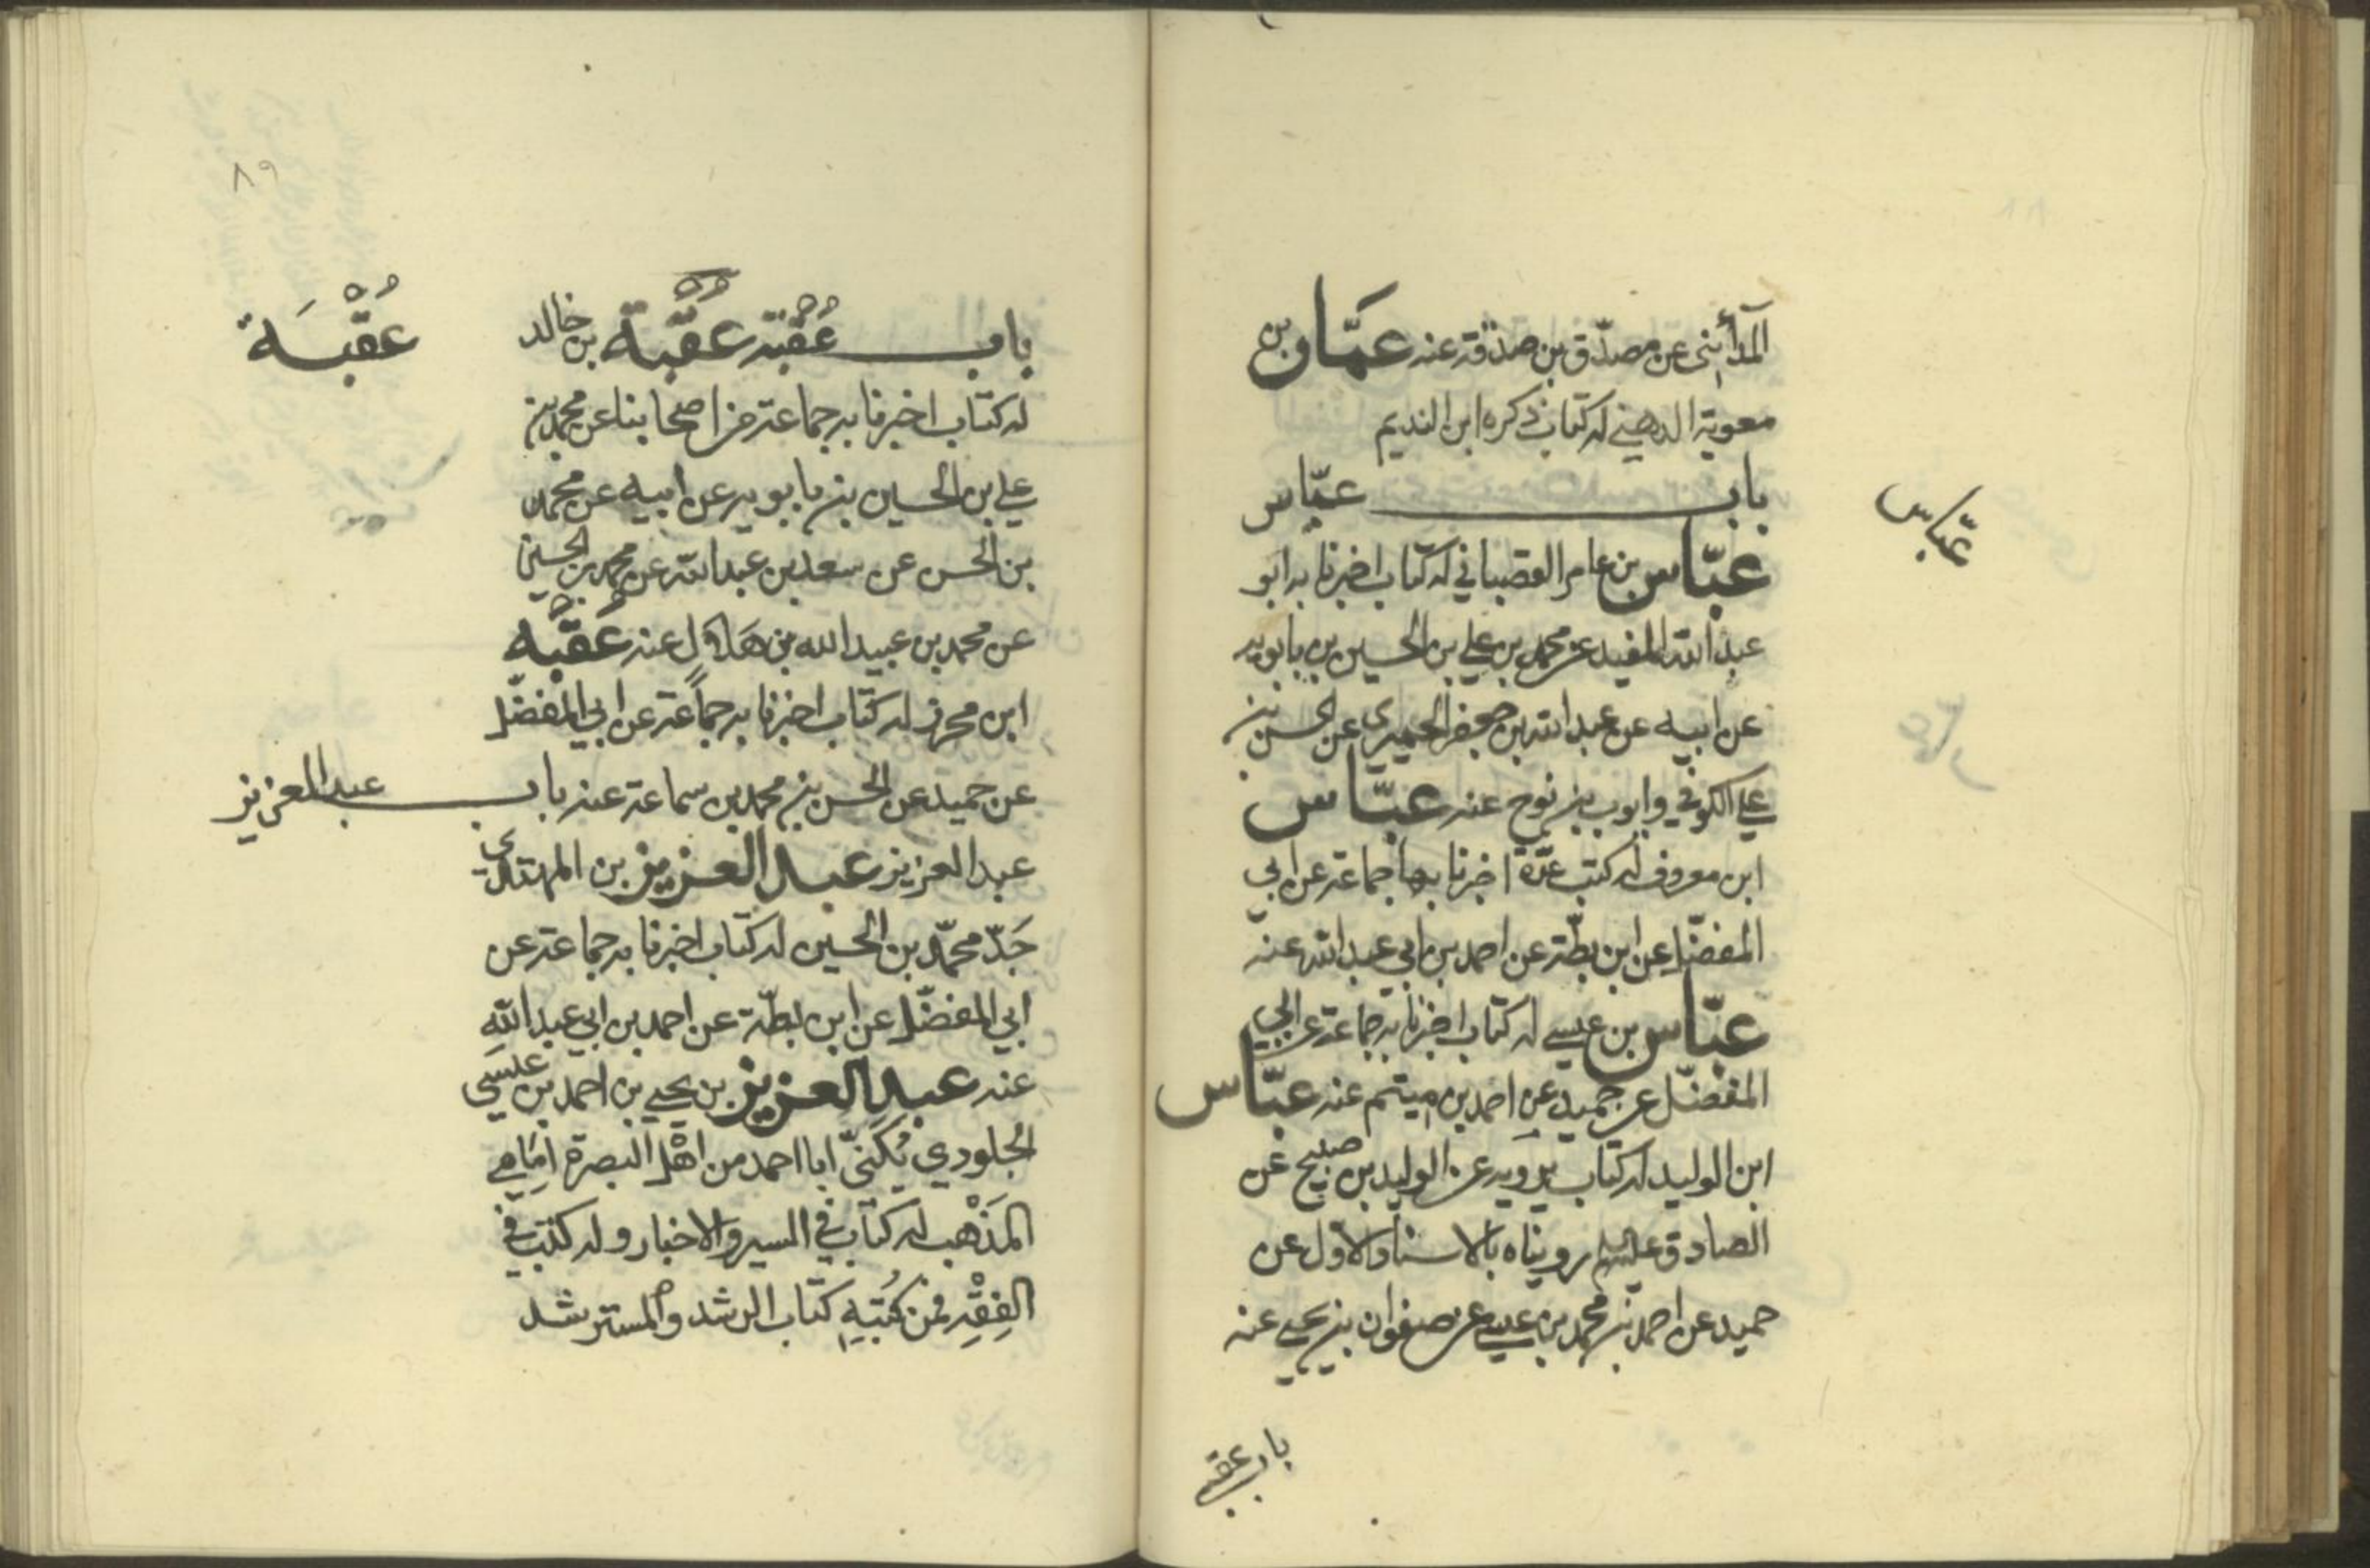 المدائني عن مصدّق بن صدقة عنه عمّار بن
معوية الدهني له كتاب ذكره ابن النديم
باب عبّاس
عبّاس
عبّاس بن عامر القصباني له كتاب اخبرنا به ابو
عبد الله المفيد عن محمد بن علي بن الحسين بن بابويه
عن ابيه عن عبد الله بن جعفر الحميري عن الحسن بن
علي الكوفي وايوب بن نوح عنه عبّاس
ابن معروف له كتب عدّة اخبرنا بها جماعة عن ابي
المفضّل عن ابن بطّة عن احمد بن ابي عبد الله عنه
عبّاس بن عيسى له كتاب اخبرنا به جماعة عن ابي
المفضّل عن حميد عن احمد بن ميتم عنه عبّاس
ابن الوليد له كتاب يرويه عن الوليد بن صبيح عن
الصادق عليه السلام رويناه بالاسناد الاول عن
حميد عن احمد بن محمد بن عيسى عن صفوان بن يحيى عنه
باب عقبة
٨٩
باب عُقْبَة عُقْبَة بن خالد
عُقْبَة
له كتاب اخبرنا به جماعة من اصحابنا عن محمد بن
علي بن الحسين بن بابويه عن ابيه عن محمد
بن الحسن عن سعد بن عبد الله عن محمد بن الحسين
عن محمد بن عبيد الله بن هلال عنه عُقْبَة
ابن محرز له كتاب اخبرنا به جماعة عن ابي المفضّل
عن حميد عن الحسن بن محمد بن سماعة عنه باب عبد العزيز
عبد العزيز عبد العزيز بن المهتدي
جَدّ محمّد بن الحسين له كتاب اخبرنا به جماعة عن
ابي المفضّل عن ابن بطّة عن احمد بن ابي عبد الله
عنه عبد العزيز بن يحيى بن احمد بن عيسى
الجلودي يُكَنّى ابا احمد من اهْل البصرة امَامِي
المَذْهب له كتاب في السير والاخبار وله كتب في
الفِقْهِ فمن كُتبِهِ كتاب الرشد والمسترشد